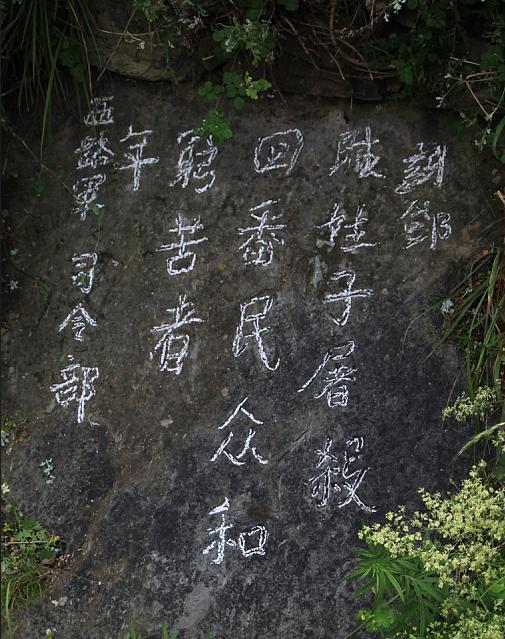 劉鄧
賊娃子屠殺
回番民众和
窮苦者
年
西路軍司令部